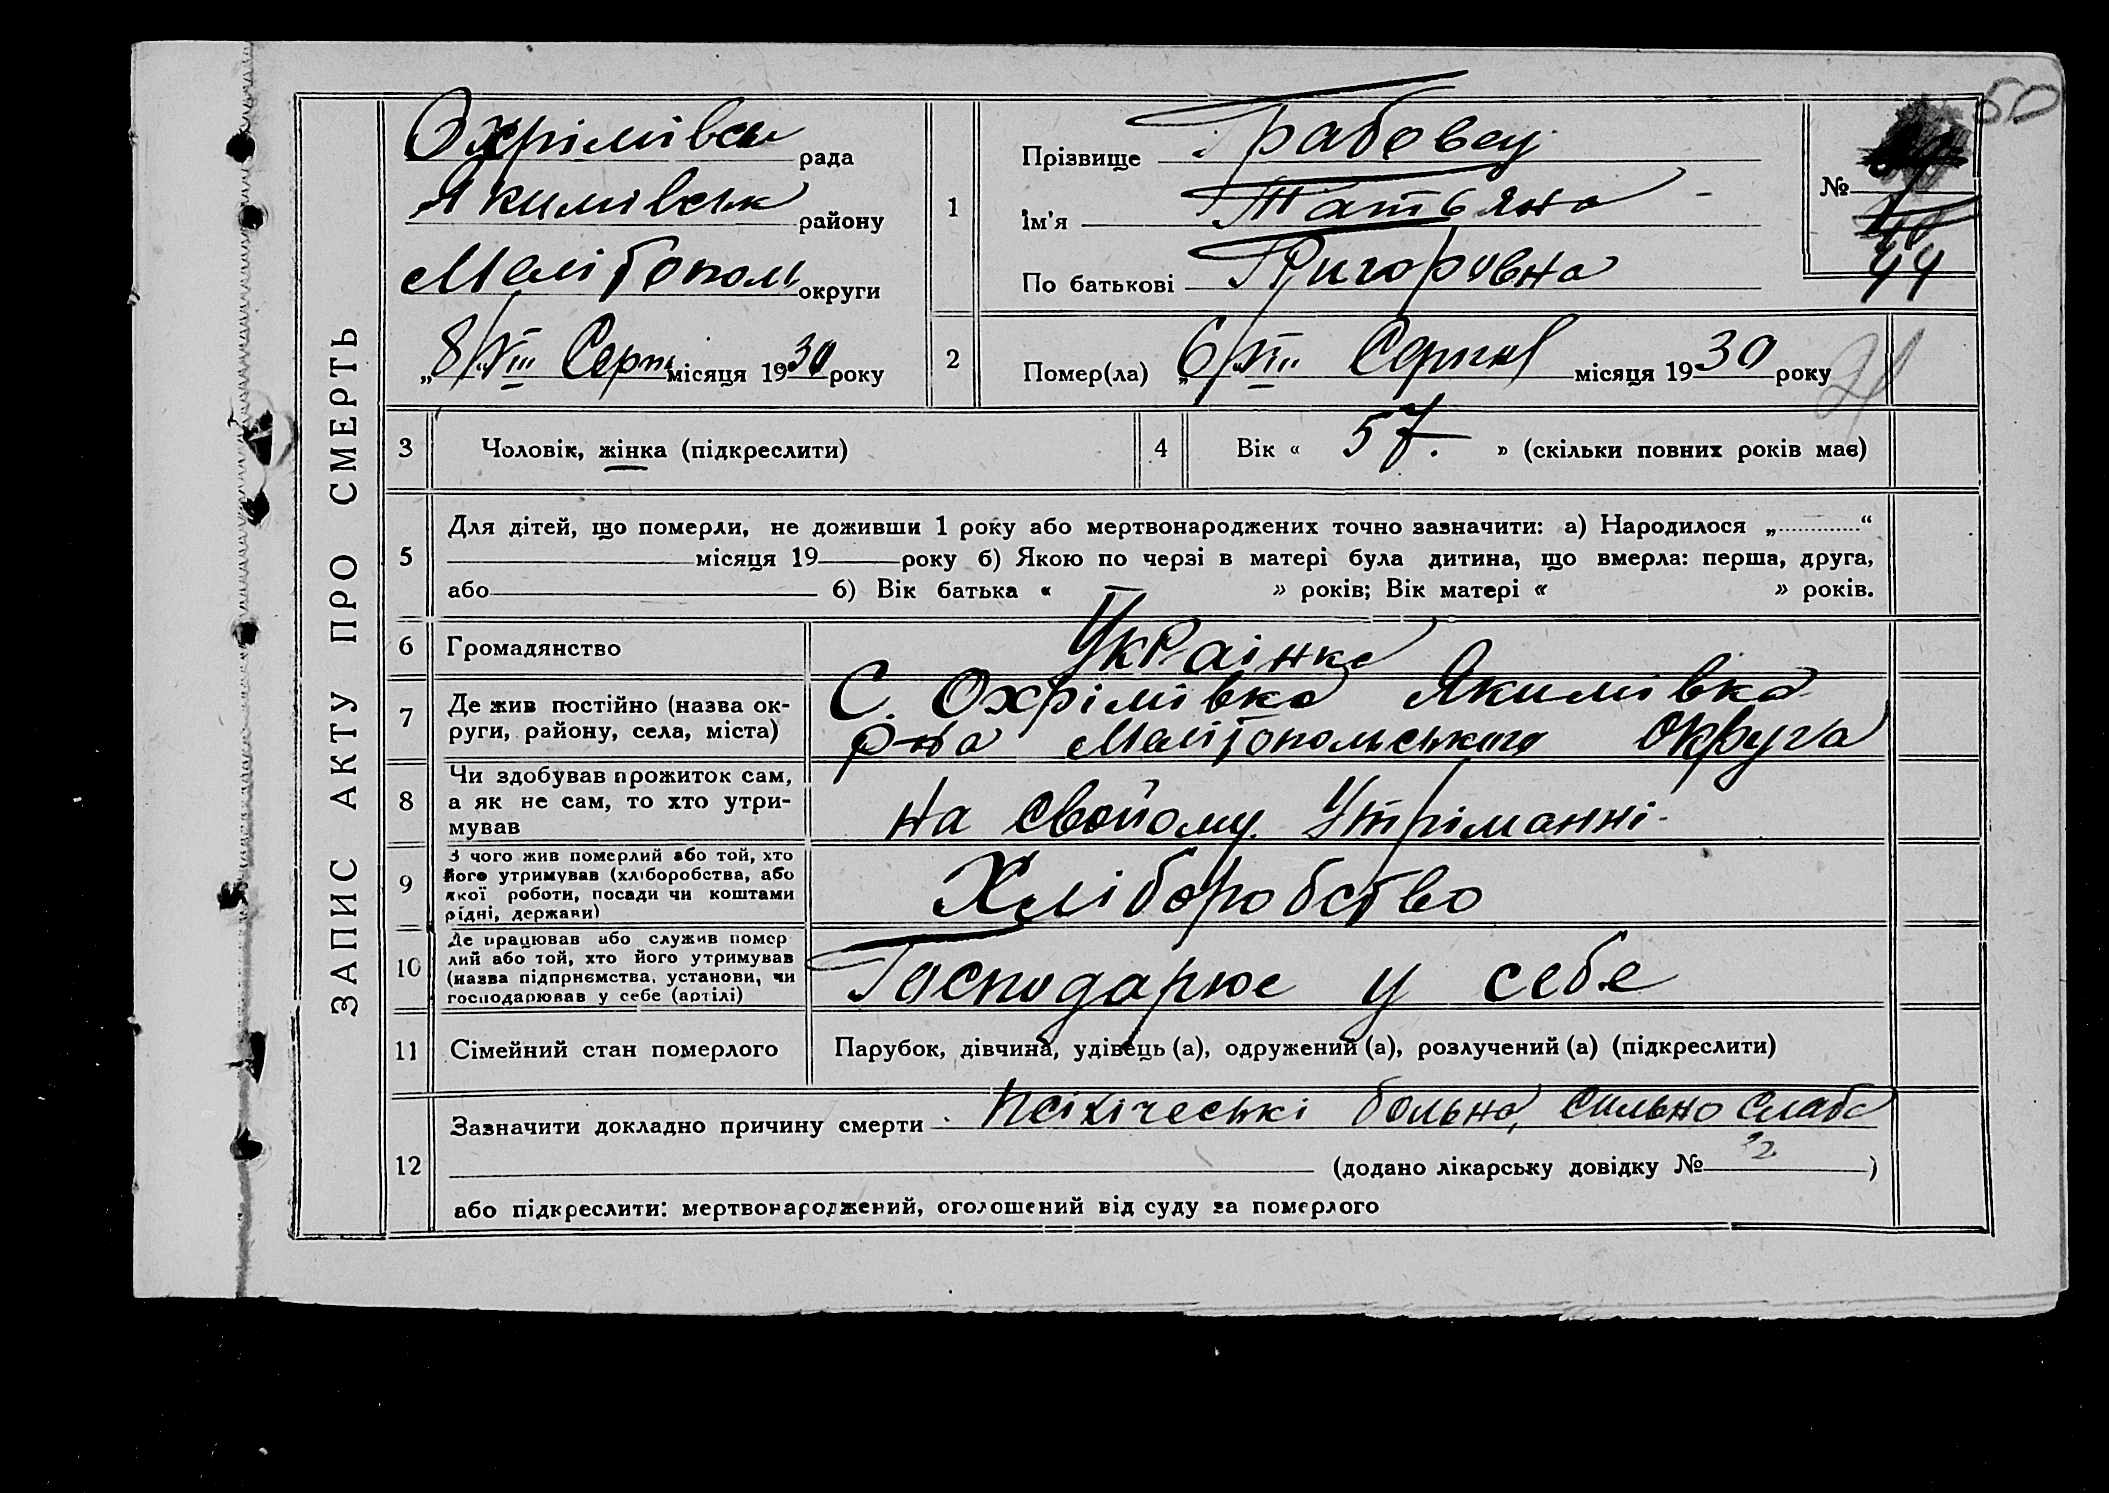 50
ЗАПИС АКТУ ПРО СМЕРТЬ
Охрімівськ рада
Якимівськ району
Мелітополь округи
„8/VIII Серпн місяця 1930 року
1
Прізвище Грабовец
Ім'я Татьяна
По батькові Григоровна
№ 44
2
Помер(ла) „6/VIII Серпня місяця 1930 року
21
3 Чоловік, жінка (підкреслити)
4 Вік « 57. » (скільки повних років має)
5
Для дітей, що померли, не доживши 1 року або мертвонароджених точно зазначити: а) Народилося „ “
місяця 19 року б) Якою по черзі в матері була дитина, що вмерла: перша, друга,
або б) Вік батька « » років; Вік матері « » років.
6 Громадянство Українка
7
Де жив постійно (назва ок-
руги, району, села, міста)
С. Охрімівка Якимівка
р-на Мелітопольського Округа
8
Чи здобував прожиток сам,
а як не сам, то хто утри-
мував
на свойому Утріманні.
9
З чого жив померлий або той, хто
його утримував (хліборобства, або
якої роботи, посади чи коштами
рідні, держави)
Хліборобство
10
Де працював або служив помер
лий або той, хто його утримував
(назва підприємства, установи, чи
господарював у себе (артілі)
Господарює у себе
11 Сімейний стан померлого Парубок, дівчина, удівець (а), одружений (а), розлучений (а) (підкреслити)
12
Зазначити докладно причину смерти Псіхічеські больна, сильно слаба
(додано лікарську довідку № )
або підкреслити: мертвонароджений, оголошений від суду за померлого